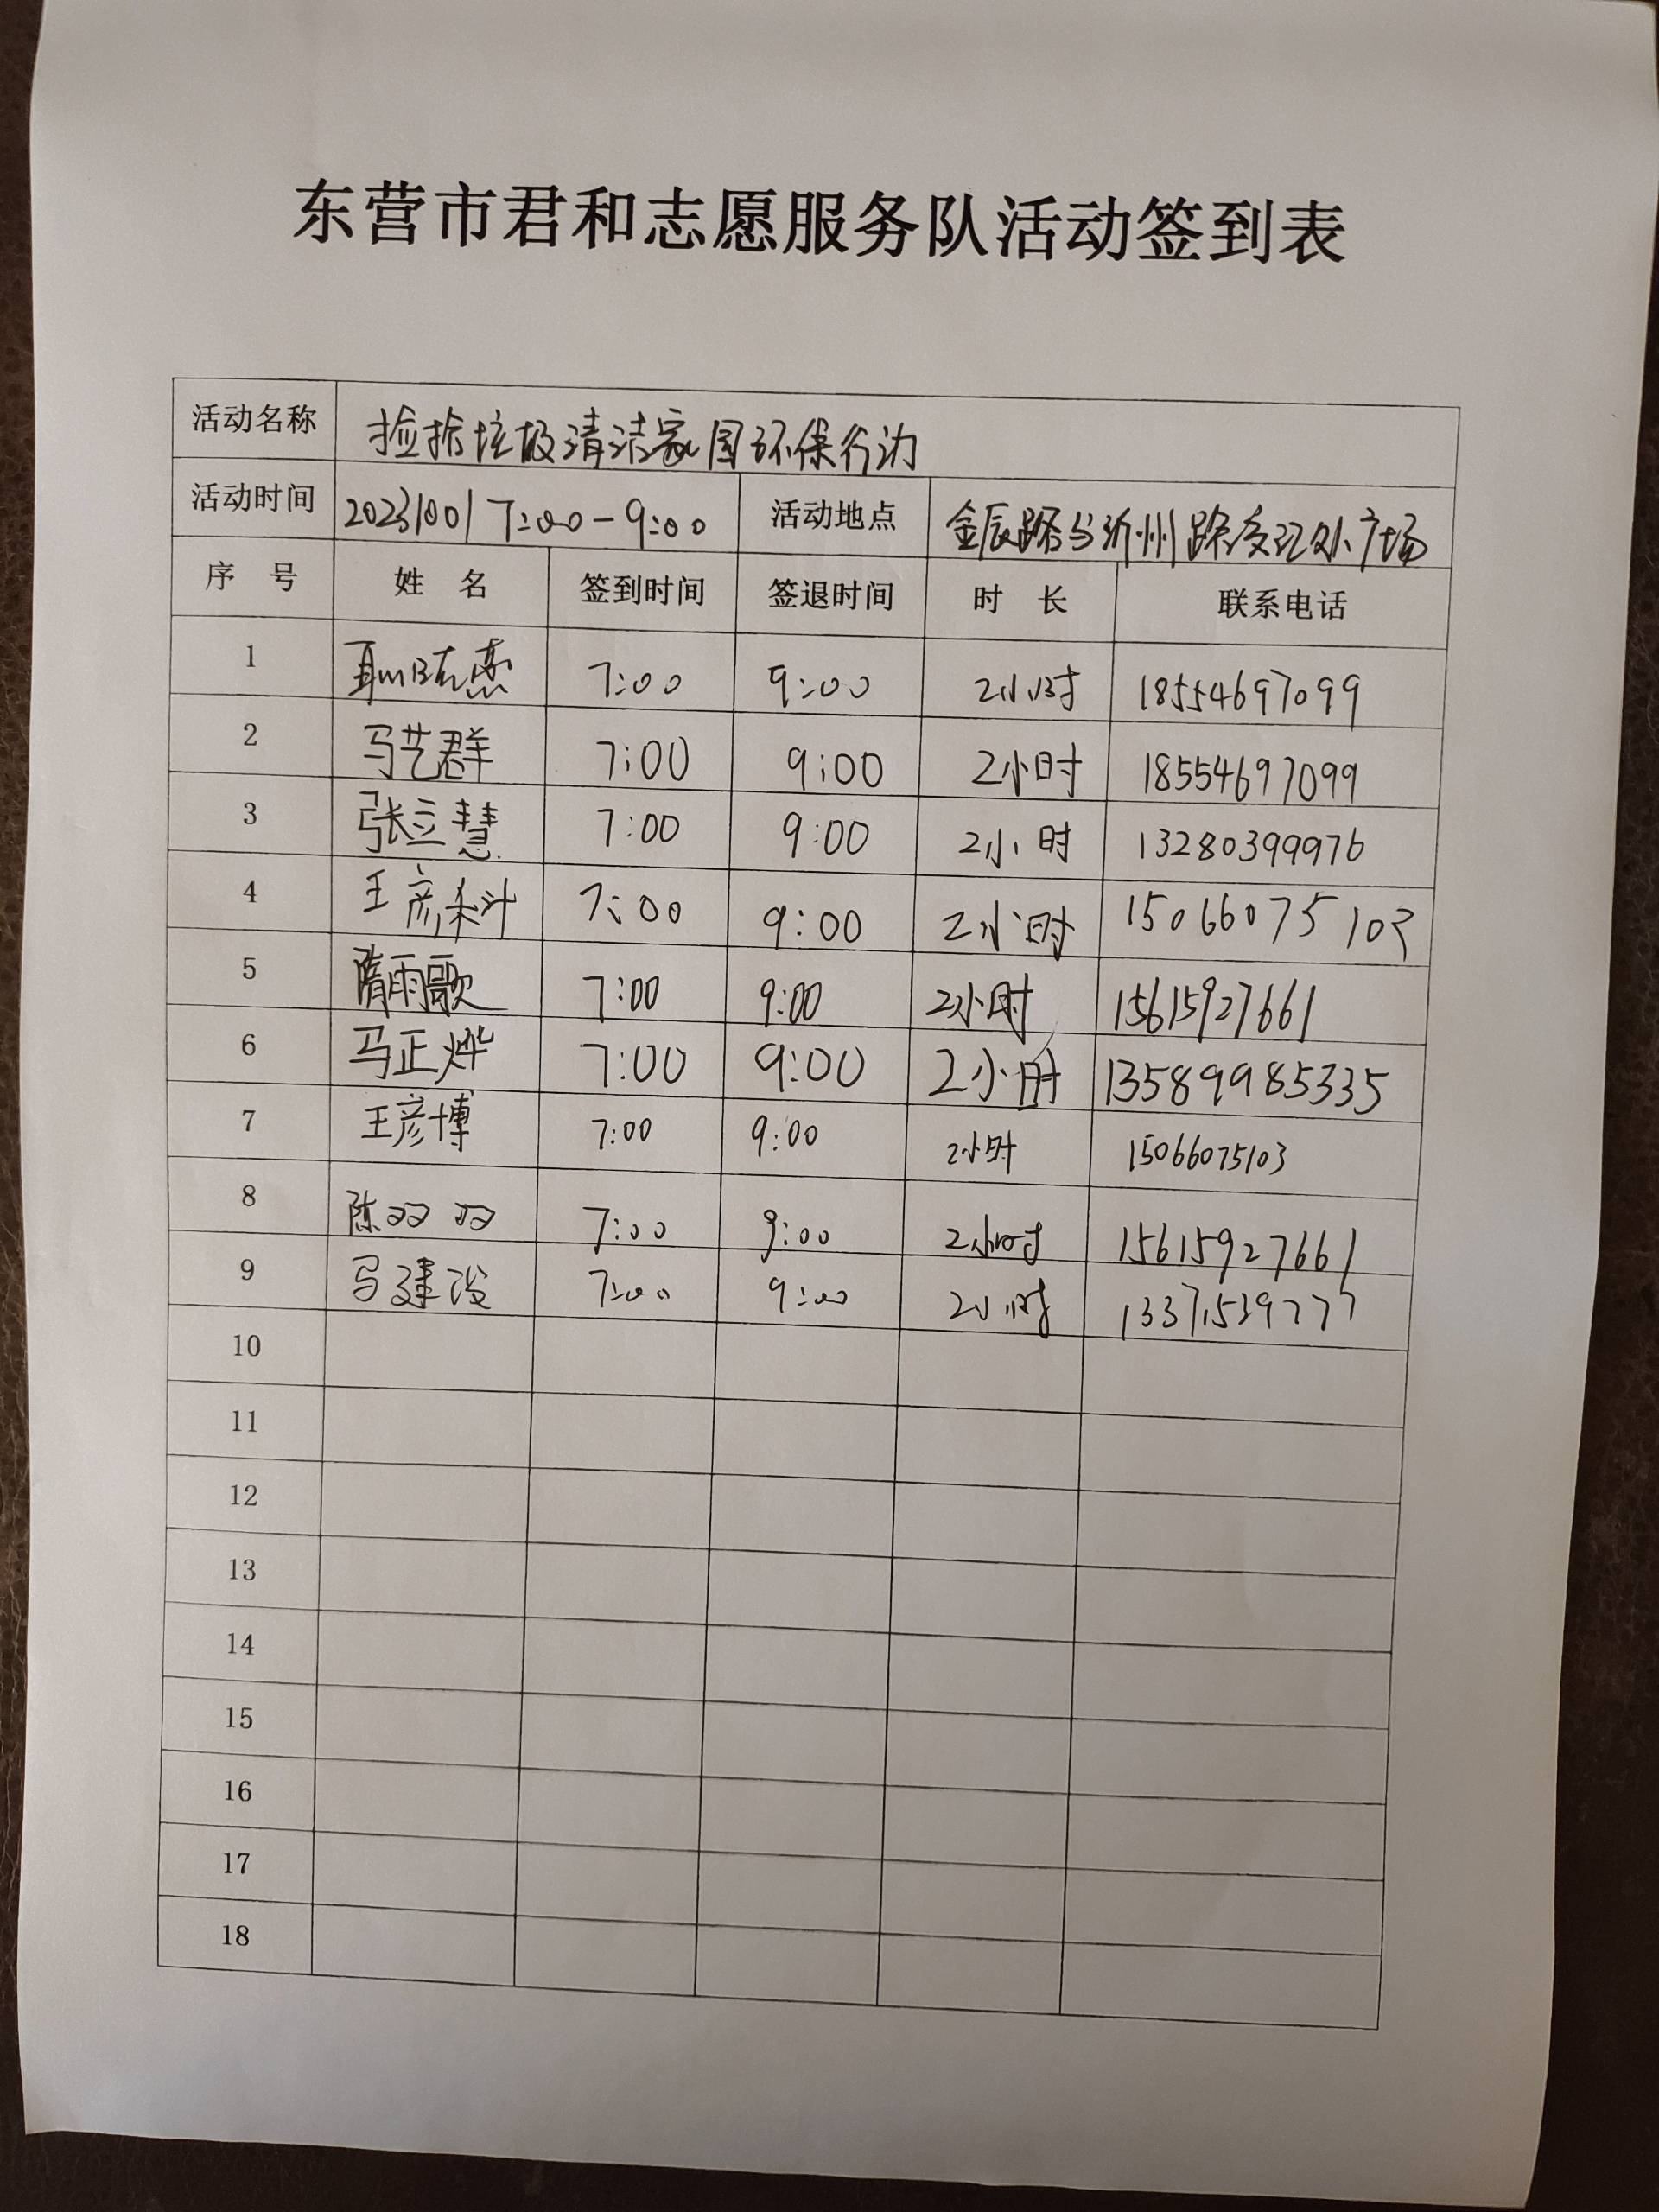 东营市君和志愿服务队活动签到表
活动名称 捡拾垃圾清洁家园环保行动
活动时间 20231001 7:00-9:00 活动地点 金辰路与沂州路交汇处广场
序 号 姓 名 签到时间 签退时间 时 长 联系电话
1 7:00 9:00 2小时 18554697099
2 马艺群 7:00 9:00 2小时 18554697099
3 张立慧 7:00 9:00 2小时 13280399976
4 王彦 7:00 9:00 2小时 15066075103
5 隋雨歌 7:00 9:00 2小时 15615927661
6 马正烨 7:00 9:00 2小时 13589985335
7 王彦博 7:00 9:00 2小时 15066075103
8 陈双双 7:00 9:00 2小时 15615927661
9 马建设 7:00 9:00 2小时 13371539777
10
11
12
13
14
15
16
17
18